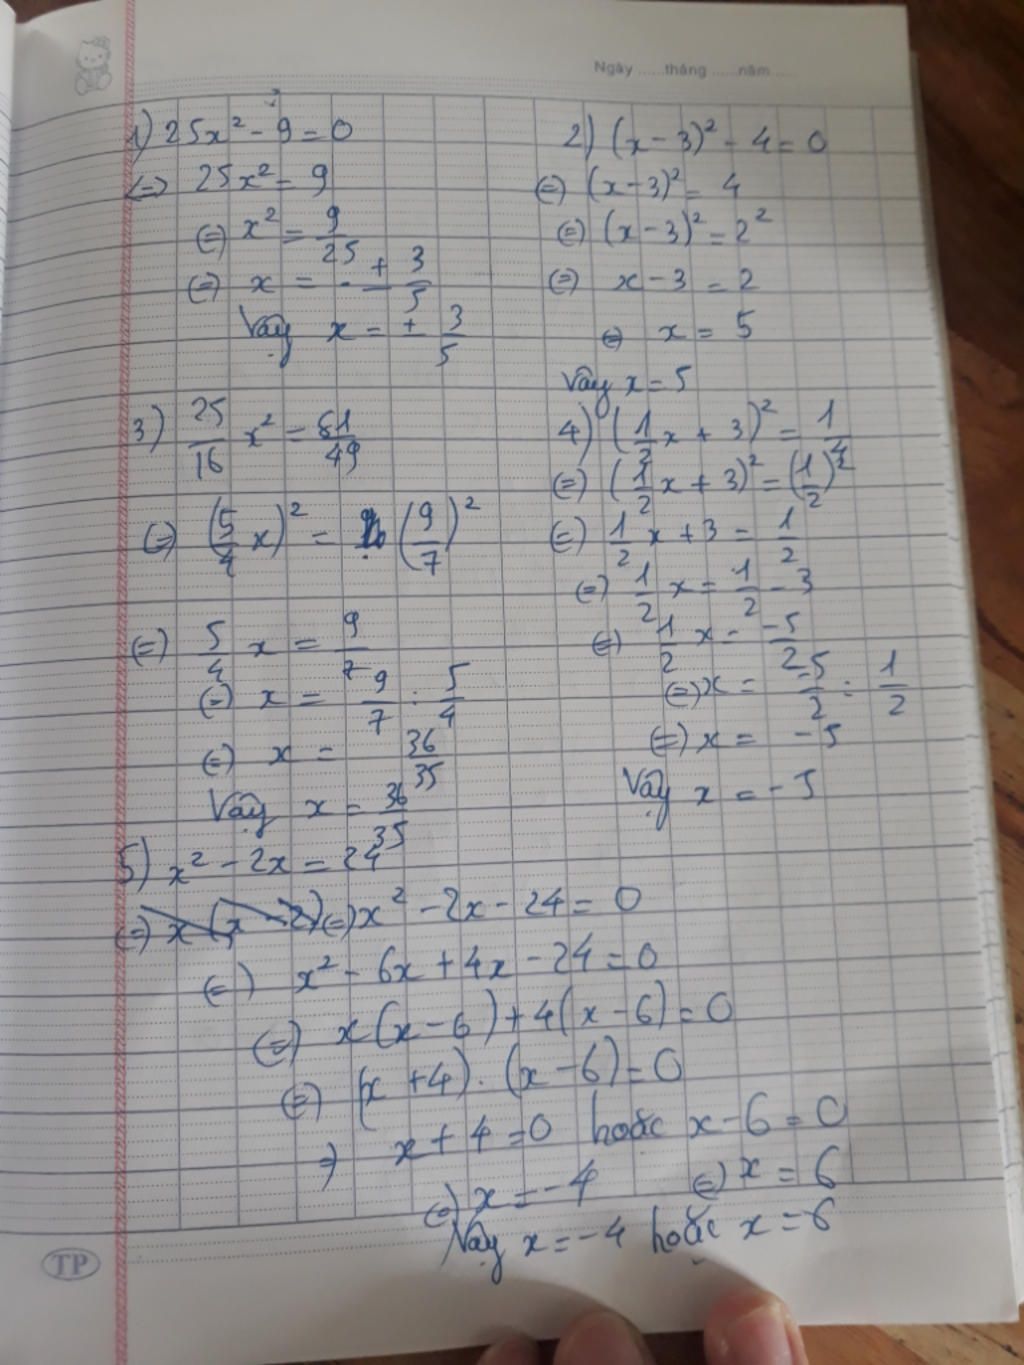 Ngày ......tháng ......năm ......
1) 25x² - 9 = 0
<=> 25x² = 9
(=) x² = 9/25
(=) x = ± 3/5
Vậy x = ± 3/5
2) (x - 3)² - 4 = 0
(=) (x - 3)² = 4
(=) (x - 3)² = 2²
(=) x - 3 = 2
(=) x = 5
Vậy x = 5
3) 25/16 x² = 81/49
(=) (5/4 x)² = (9/7)²
(=) 5/4 x = 9/7
(=) x = 9/7 : 5/4
(=) x = 36/35
Vậy x = 36/35
4) (1/2 x + 3)² = 1/4
(=) (1/2 x + 3)² = (1/2)²
(=) 1/2 x + 3 = 1/2
(=) 1/2 x = 1/2 - 3
(=) 1/2 x = -5/2
(=) x = -5/2 : 1/2
(=) x = -5
Vậy x = -5
5) x² - 2x = 24
(=) x (x - 2) (=) x² - 2x - 24 = 0
(=) x² - 6x + 4x - 24 = 0
(=) x(x - 6) + 4(x - 6) = 0
(=) (x + 4) . (x - 6) = 0
=) x + 4 = 0 hoặc x - 6 = 0
(=) x = -4 (=) x = 6
Vậy x = -4 hoặc x = 6
TP